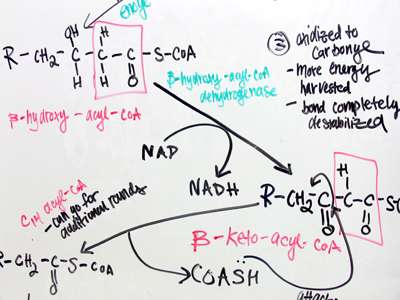 enoyl
OH H
R-CH₂-C-C-C-S-CoA
H H O
β-hydroxy-acyl-CoA
β-hydroxy-acyl-CoA
dehydrogenase
③ oxidized to
carbonyl
- More energy
harvested
- bond completely
destabilized
NAD
NADH
H
R-CH₂-C-C-C-S
O H O
β-keto-acyl-CoA
C14 acyl-CoA
- can go for
additional rounds
R-CH₂-C-S-CoA
O
CoASH
attacks